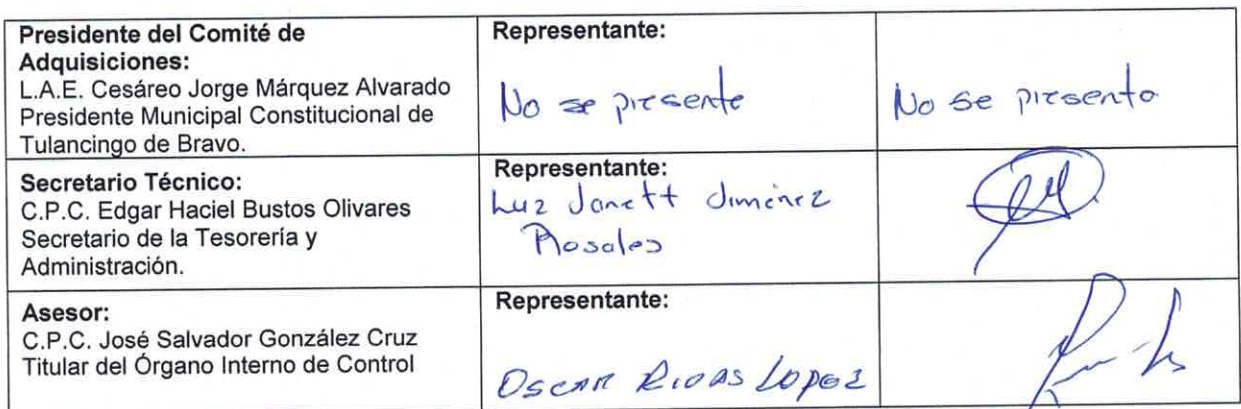 Presidente del Comité de
Adquisiciones:
L.A.E. Cesáreo Jorge Márquez Alvarado
Presidente Municipal Constitucional de
Tulancingo de Bravo.
Representante:
No se presente
No se presento
Secretario Técnico:
C.P.C. Edgar Haciel Bustos Olivares
Secretario de la Tesorería y
Administración.
Representante:
Luz Janett Jiménez
Rosales
Asesor:
C.P.C. José Salvador González Cruz
Titular del Órgano Interno de Control
Representante:
OSCAR RIOAS LOPEZ